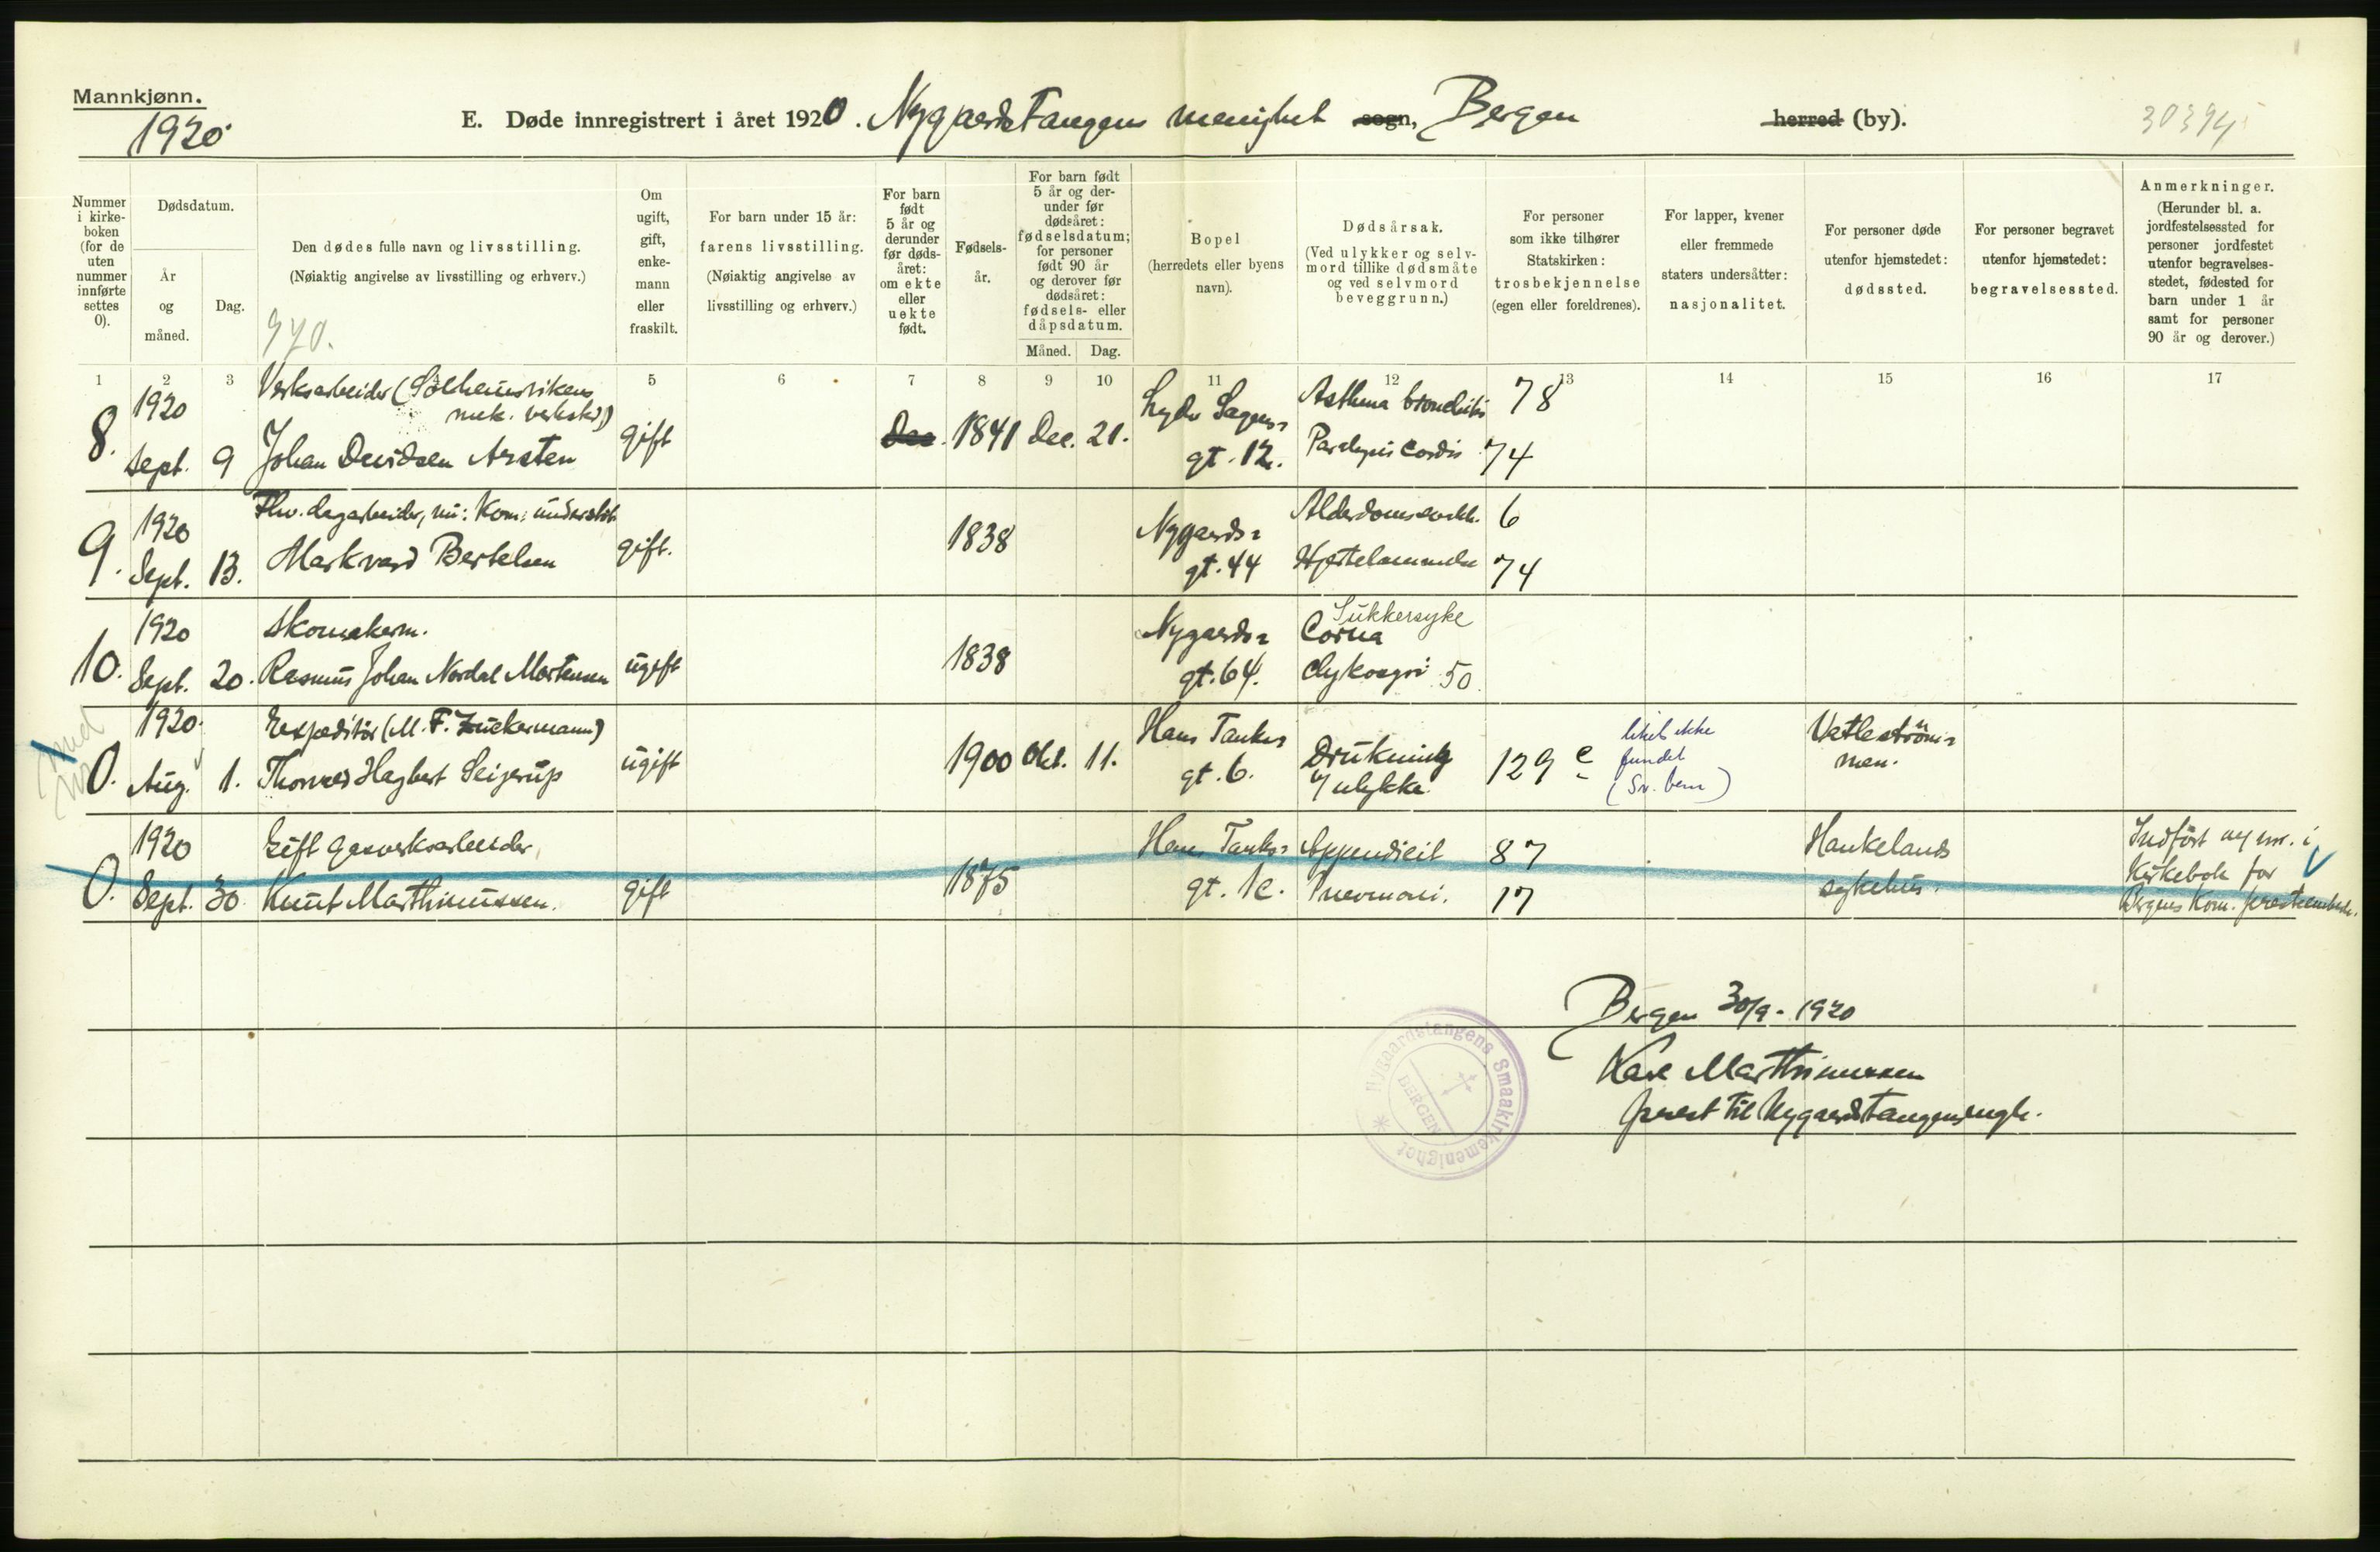 Mannkjønn.
1920
E. Døde innregistrert i året 1920. Nygaardstangens menighet sogn, Bergen herred (by).
30394
Nummer i kirkeboken (for de uten nummer innførte settes 0).
Dødsdatum.
År og måned.
Dag.
Den dødes fulle navn og livsstilling.
(Nøiaktig angivelse av livsstilling og erhverv.)
970.
Om ugift, gift, enkemann eller fraskilt.
For barn under 15 år:
farens livsstilling.
(Nøiaktig angivelse av livsstilling og erhverv.)
For barn født 5 år og derunder før dødsåret: om ekte eller uekte født.
Fødselsår.
For barn født 5 år og derunder før dødsåret: fødselsdatum; for personer født 90 år og derover før dødsåret: fødsels- eller dåpsdatum.
Måned. Dag.
Bopel
(herredets eller byens navn).
Dødsårsak.
(Ved ulykker og selvmord tillike dødsmåte og ved selvmord beveggrunn.)
For personer som ikke tilhører Statskirken: trosbekjennelse (egen eller foreldrenes).
For lapper, kvener eller fremmede staters undersåtter: nasjonalitet.
For personer døde utenfor hjemstedet: dødssted.
For personer begravet utenfor hjemstedet: begravelsessted.
Anmerkninger.
(Herunder bl. a. jordfestelsessted for personer jordfestet utenfor begravelsesstedet, fødested for barn under 1 år samt for personer 90 år og derover.)
1 2 3 5 6 7 8 9 10 11 12 13 14 15 16 17
Verksarbeider (Solheimsvikens
mek. verksted)
8. 1920 Sept. 9 Johan Davidsen Arsten gift Dec. 1841 Dec. 21. Lyder Sagens gt. 12. Asthma bronchitis 78
Paralysis cordis 74
Fhv. dagarbeider, nu: Kom. understøt.
9. 1920 Sept. 13. Markvard Bertelsen gift. 1838 Nygaards gt. 44 Alderdomssvekk. 6
Hjertelammelse 74
Skomakerm.
10. 1920 Sept. 20. Rasmus Johan Nordal Mortensen ugift 1838 Nygaards gt. 64. Sukkersyke
Coma
Glykosuri 50.
Expeditør (M. F. Zuckermann)
0. 1920 Aug. 1. Thorvald Hagbart Seijerup ugift 1900 Okt. 11. Hans Tanks gt. 6. Drukning
v/ ulykke. 129 c liket ikke
fundet
(Sv. bem) Vatlestrømmen.
Gift gasverksarbeider
0. 1920 Sept. 30 Knut Marthinussen. gift 1875 Hans Tanks gt. 1c. Appendicit 87
Pneumoni. 17 Haukelands
sykehus. Indført uy nr. i
Kirkebok for
Bergens Kom. presteembede.
Bergen 30/9 - 1920
Kare Marthinussen
prest til Nygaardstangens mgh.
Nygaardstangens Smaakirkemenighet
BERGEN